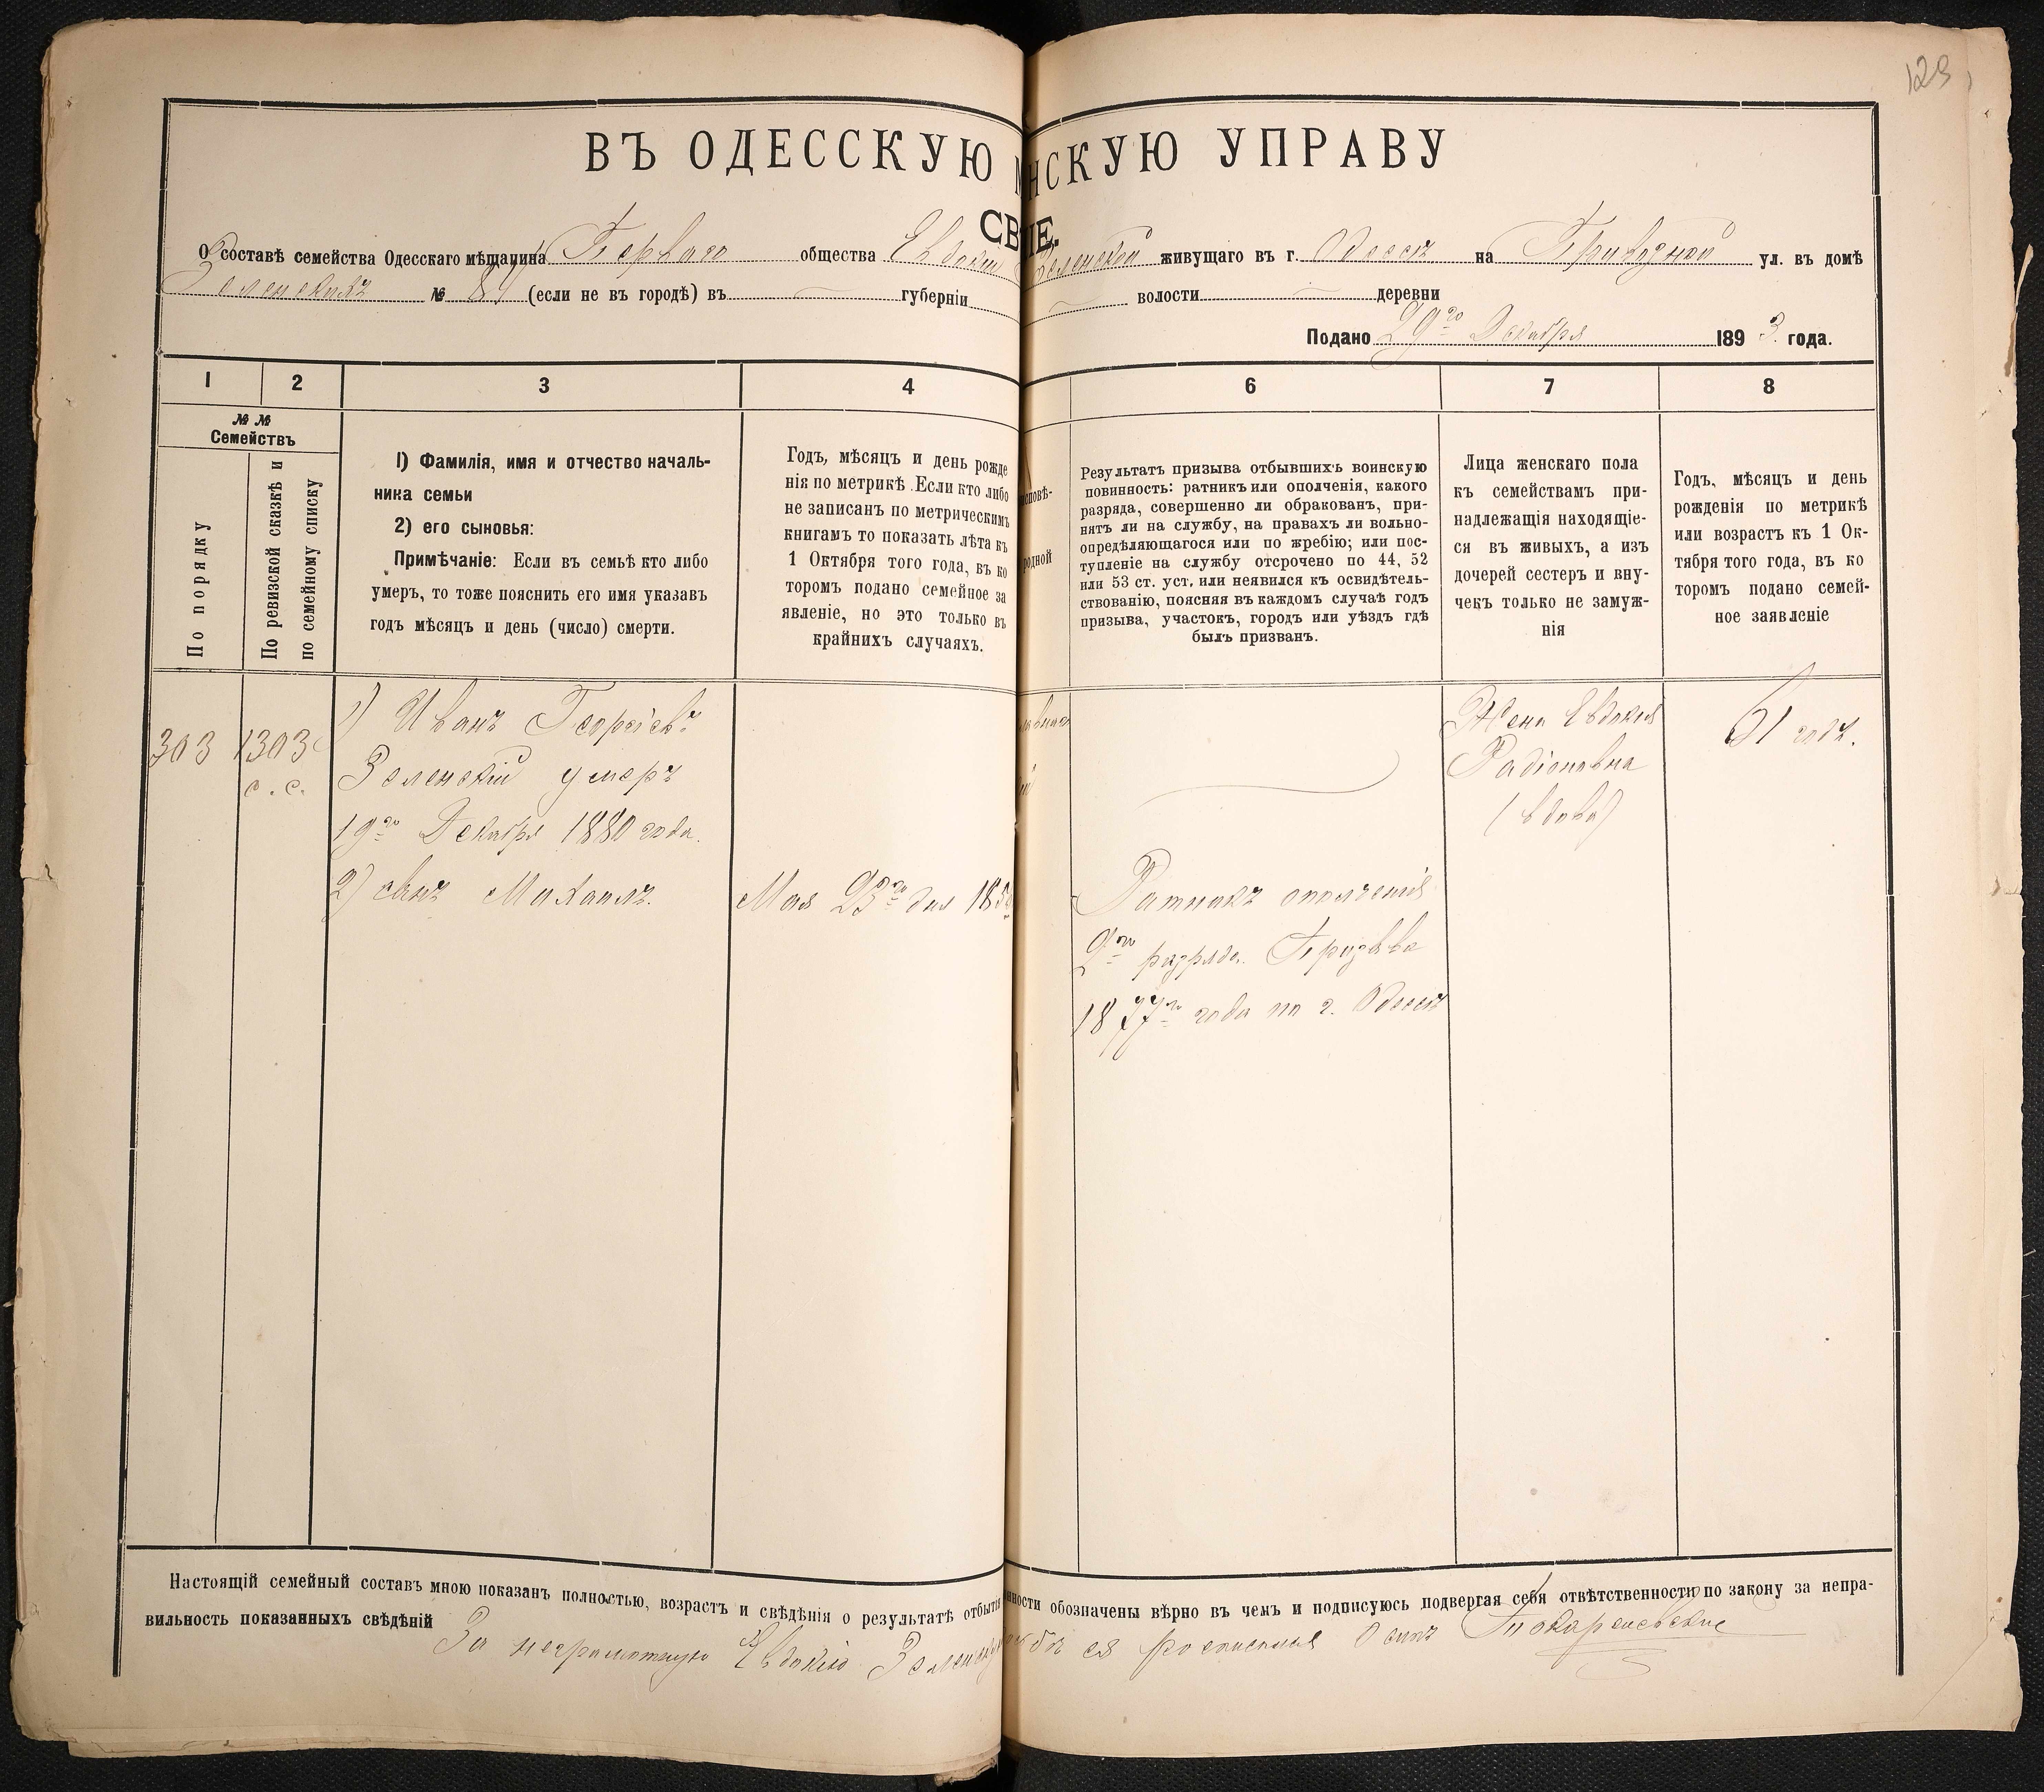 123
ВЪ ОДЕССКУЮ НСКУЮ УПРАВУ
СВ IE.
О составѣ семейства Одесскаго мѣщанина Перваго общества Евдокіи Зеленской живущаго въ г. Одессѣ на ул. въ домѣ
Зеленскихъ № (если не въ городѣ) въ — губерніи — волости — деревни
Подано 29го Декабря 1893 года.
1 2 3 4 6 7 8
№ №
Семействъ
По порядку
По ревизской сказкѣ и
по семейному списку
1) Фамилія, имя и отчество началь-
ника семьи
2) его сыновья:
Примѣчаніе: Если въ семьѣ кто либо
умеръ, то тоже пояснить его имя указавъ
годъ мѣсяцъ и день (число) смерти.
Годъ, мѣсяцъ и день рожде
нія по метрикѣ. Если кто либо
не записанъ по метрическимъ
книгамъ то показать лѣта къ
1 Октября того года, въ ко
торомъ подано семейное за
явленіе, но это только въ
крайнихъ случаяхъ.
споовѣ-
родной
Результатъ призыва отбывшихъ воинскую
повинность: ратникъ или ополченія, какого
разряда, совершенно ли обракованъ, при-
нятъ ли на службу, на правахъ ли вольно-
опредѣляющагося или по жребію; или пос-
тупленіе на службу отсрочено по 44, 52
или 53 ст. уст. или неявился къ освидѣтель-
ствованію, поясняя въ каждомъ случаѣ годъ
призыва, участокъ, городъ или уѣздъ гдѣ
былъ призванъ.
Лица женскаго пола
къ семействамъ при-
надлежащія находящіе-
ся въ живыхъ, а изъ
дочерей сестеръ и вну-
чекъ только не замуж-
нія
Годъ, мѣсяцъ и день
рожденія по метрикѣ
или возрастъ къ 1 Ок-
тября того года, въ ко
торомъ подано семей-
ное заявленіе
303 1303
с. с.
1) Иванъ Георгіевъ
Зеленскій умеръ
19го Декабря 1880 года.
2) сынъ Михаилъ.
Мая 23го дня
Ратникъ ополченія
2го разряда. Призыва
1877го года по г. Одессѣ
Жена Евдокія
Радіоновна
(вдова)
61 годъ.
Настоящій семейный составъ мною показанъ полностью, возрастъ и свѣдѣнія о результатѣ отбытія нности обозначены вѣрно въ чемъ и подписуюсь подвергая себя отвѣтственности по закону за непра-
вильность показанныхъ свѣдѣній За неграмотную Евдокію ея росписался Осипъ